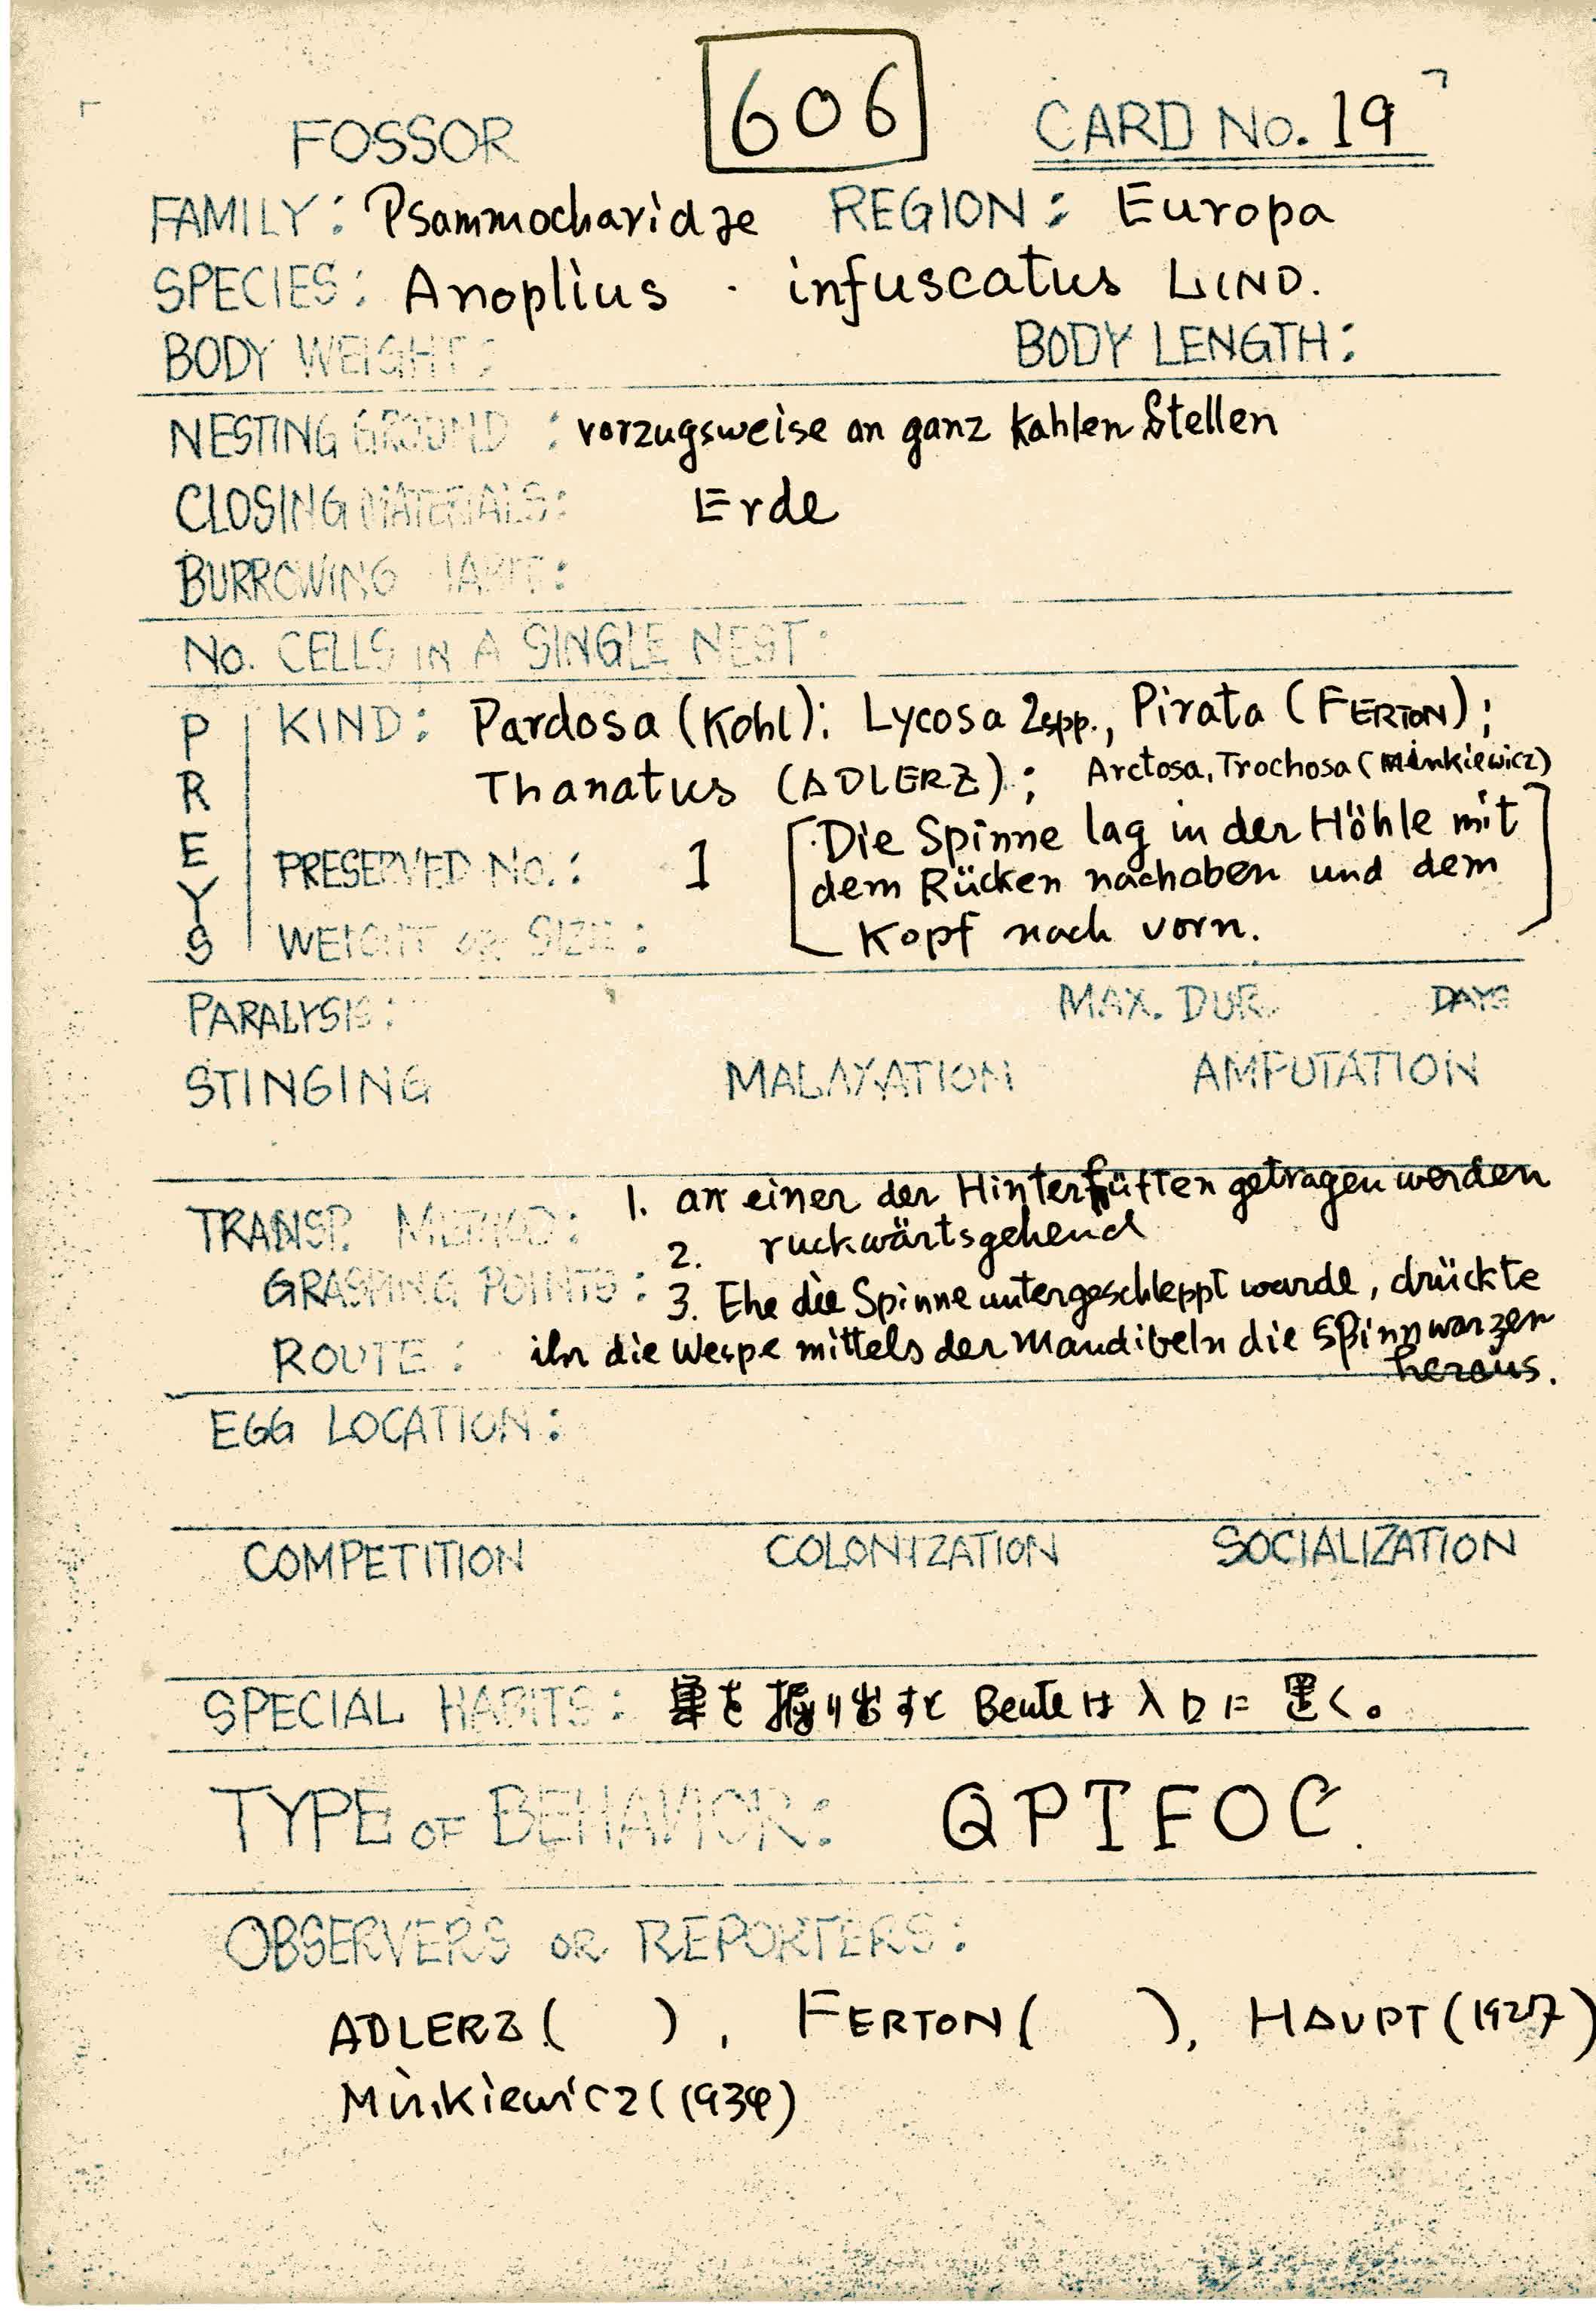 606
FOSSOR CARD No. 19
FAMILY: Psammocharidae REGION: Europa
SPECIES: Anoplius · infuscatus LIND.
BODY WEIGHT: BODY LENGTH:
NESTING GROUND: vorzugsweise an ganz kahlen Stellen
CLOSING MATERIALS: Erde
BURROWING HABIT:
No. CELLS IN A SINGLE NEST:
PREYS
KIND: Pardosa (Kohl); Lycosa 2spp., Pirata (FERTON);
Thanatus (ADLERZ); Arctosa, Trochosa (Minkiewicz)
PRESERVED No.: 1 [Die Spinne lag in der Höhle mit
dem Rücken nachoben und dem
WEIGHT OR SIZE: Kopf nach vorn.]
PARALYSIS: MAX. DUR. DAYS
STINGING MALAXATION AMPUTATION
TRANSP. METHOD: 1. an einer der Hinterhüften getragen werden
2. ruckwärtsgehend
GRASPING POINTS: 3. Ehe die Spinne untergeschleppt wurde, drückte
ROUTE: ihr die Wespe mittels der Mandibeln die Spinnwarzen
heraus.
EGG LOCATION:
COMPETITION COLONIZATION SOCIALIZATION
SPECIAL HABITS: 巣を掘り出すと Beute は入口に置く。
TYPE OF BEHAVIOR: QPTFOC.
OBSERVERS OR REPORTERS:
ADLERZ ( ), FERTON ( ), HAUPT (1927)
Minkiewicz (1934)